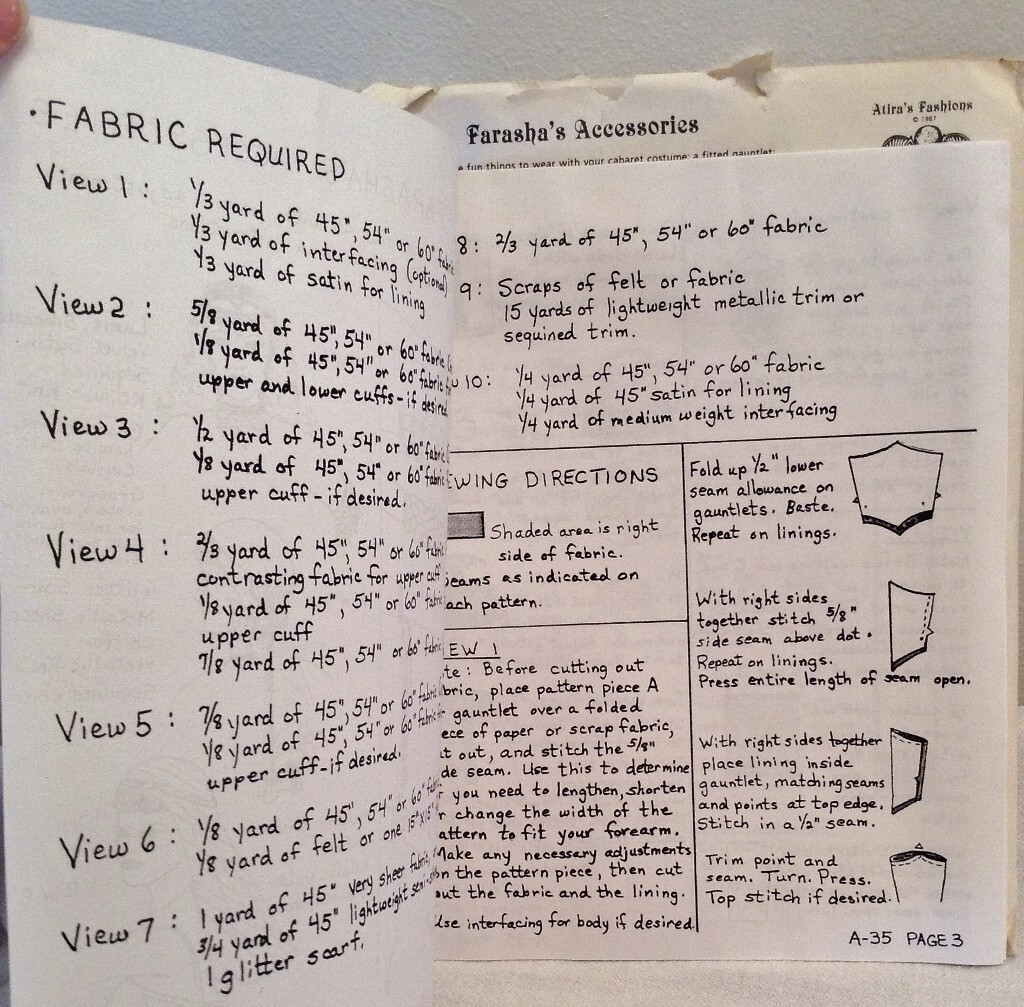 · FABRIC REQUIRED
View 1 : 1/3 yard of 45", 54" or 60"
1/3 yard of interfacing (optional)
1/3 yard of satin for lining
View 2 : 5/8 yard of 45", 54" or 60" fabric
1/8 yard of 45", 54" or 60" fabric
upper and lower cuffs - if desired
View 3 : 1/2 yard of 45", 54" or 60" fabric
1/8 yard of 45", 54" or 60" fabric
upper cuff - if desired.
View 4 : 2/3 yard of 45", 54" or 60" fabric
contrasting fabric for upper cuff
1/8 yard of 45", 54" or 60" fabric
upper cuff
7/8 yard of 45", 54" or 60" fabric
View 5 : 7/8 yard of 45", 54" or 60" fabric
1/8 yard of 45", 54" or 60" fabric
upper cuff - if desired.
View 6 : 1/8 yard of 45", 54" or 60"
1/8 yard of felt or one 15" x 15"
View 7 : 1 yard of 45" very sheer fabric,
3/4 yard of 45" lightweight
1 glitter scarf.
Farasha's Accessories
Atira's Fashions
© 1987
e fun things to wear with your cabaret costume: a fitted gauntlet;
8: 2/3 yard of 45", 54" or 60" fabric
9: Scraps of felt or fabric
15 yards of lightweight metallic trim or
sequined trim.
w 10: 1/4 yard of 45", 54" or 60" fabric
1/4 yard of 45" satin for lining
1/4 yard of medium weight interfacing
EWING DIRECTIONS
Shaded area is right
side of fabric.
seams as indicated on
ach pattern.
EW 1
te: Before cutting out
bric, place pattern piece A
gauntlet over a folded
ece of paper or scrap fabric,
t out, and stitch the 5/8"
de seam. Use this to determine
f you need to lengthen, shorten
r change the width of the
attern to fit your forearm.
Make any necessary adjustments
n the pattern piece, then cut
out the fabric and the lining.
Use interfacing for body if desired.
Fold up 1/2" lower
seam allowance on
gauntlets. Baste.
Repeat on linings.
With right sides
together stitch 5/8"
side seam above dot.
Repeat on linings.
Press entire length of seam open.
With right sides together
place lining inside
gauntlet, matching seams
and points at top edge.
Stitch in a 1/2" seam.
Trim point and
seam. Turn. Press.
Top stitch if desired.
A-35 PAGE 3